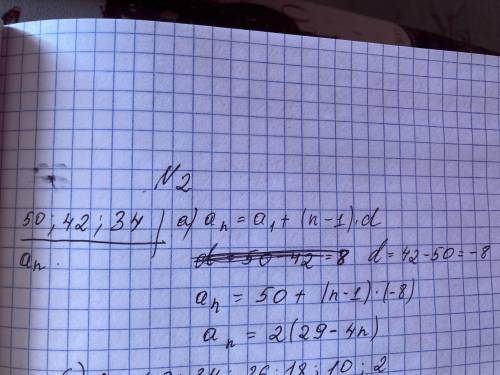 N2
50; 42; 34
a) aₙ = a₁ + (n-1)·d
aₙ.
d = 50 - 42 = 8 d = 42-50 = -8
aₙ = 50 + (n-1)·(-8)
aₙ = 2(29-4n)
34; 26; 18; 10; 2